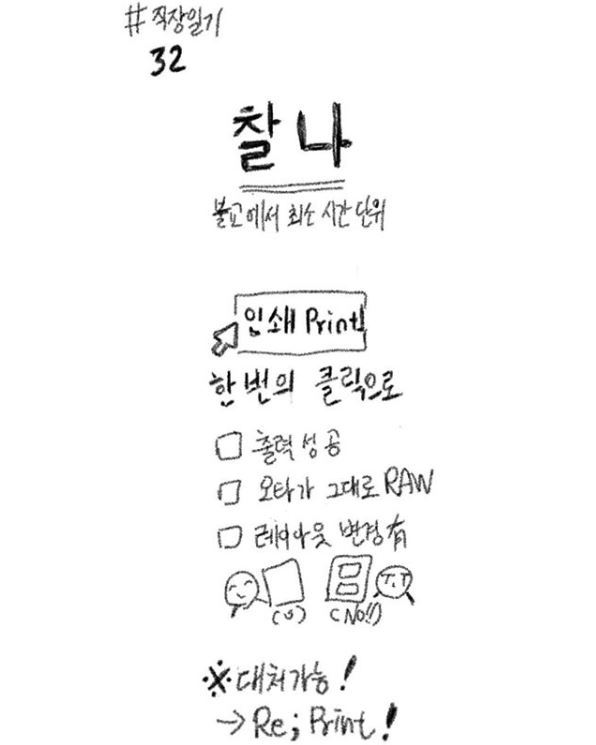 #직장일기
32
찰나
불교에서 최소 시간 단위
인쇄 Print!
한 번의 클릭으로
□ 출력 성공
□ 오타가 그대로 RAW
□ 레이아웃 변경 有
T.T
(o) (No!!)
※대처가능!
→ Re; Print!